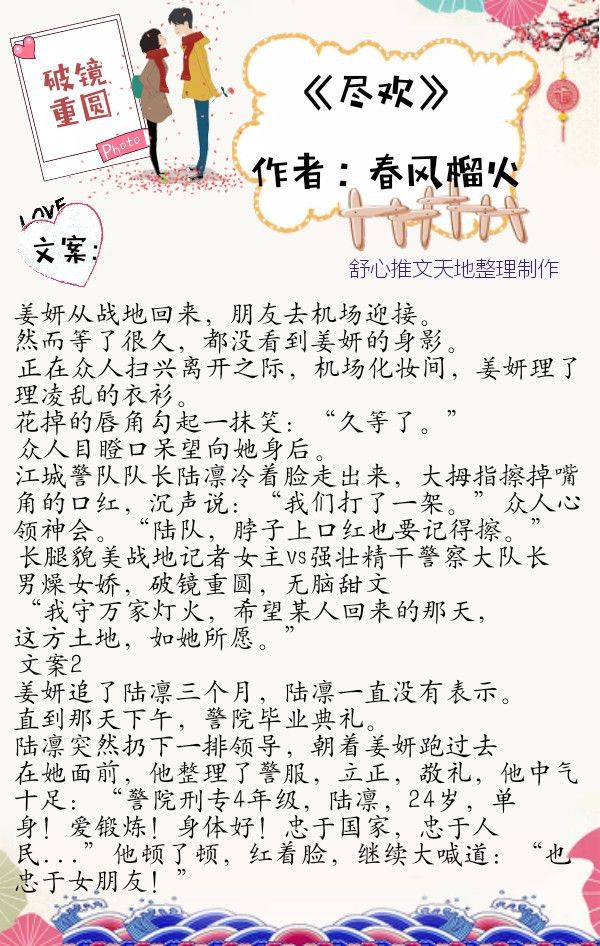 破镜
重圆
Photo
《尽欢》
作者：春风榴火
LOVE
文案：
舒心推文天地整理制作
姜妍从战地回来，朋友去机场迎接。
然而等了很久，都没看到姜妍的身影。
正在众人扫兴离开之际，机场化妆间，姜妍理了
理凌乱的衣衫。
花掉的唇角勾起一抹笑：“久等了。”
众人目瞪口呆望向她身后。
江城警队队长陆凛冷着脸走出来，大拇指擦掉嘴
角的口红，沉声说：“我们打了一架。” 众人心
领神会。“陆队，脖子上口红也要记得擦。”
长腿貌美战地记者女主vs强壮精干警察大队长
男燥女娇，破镜重圆，无脑甜文
“我守万家灯火，希望某人回来的那天，
这方土地，如她所愿。”
文案2
姜妍追了陆凛三个月，陆凛一直没有表示。
直到那天下午，警院毕业典礼。
陆凛突然扔下一排领导，朝着姜妍跑过去
在她面前，他整理了警服，立正，敬礼，他中气
十足： “警院刑专4年级，陆凛，24岁，单
身！爱锻炼！身体好！忠于国家，忠于人
民...” 他顿了顿，红着脸，继续大喊道：“也
忠于女朋友！”